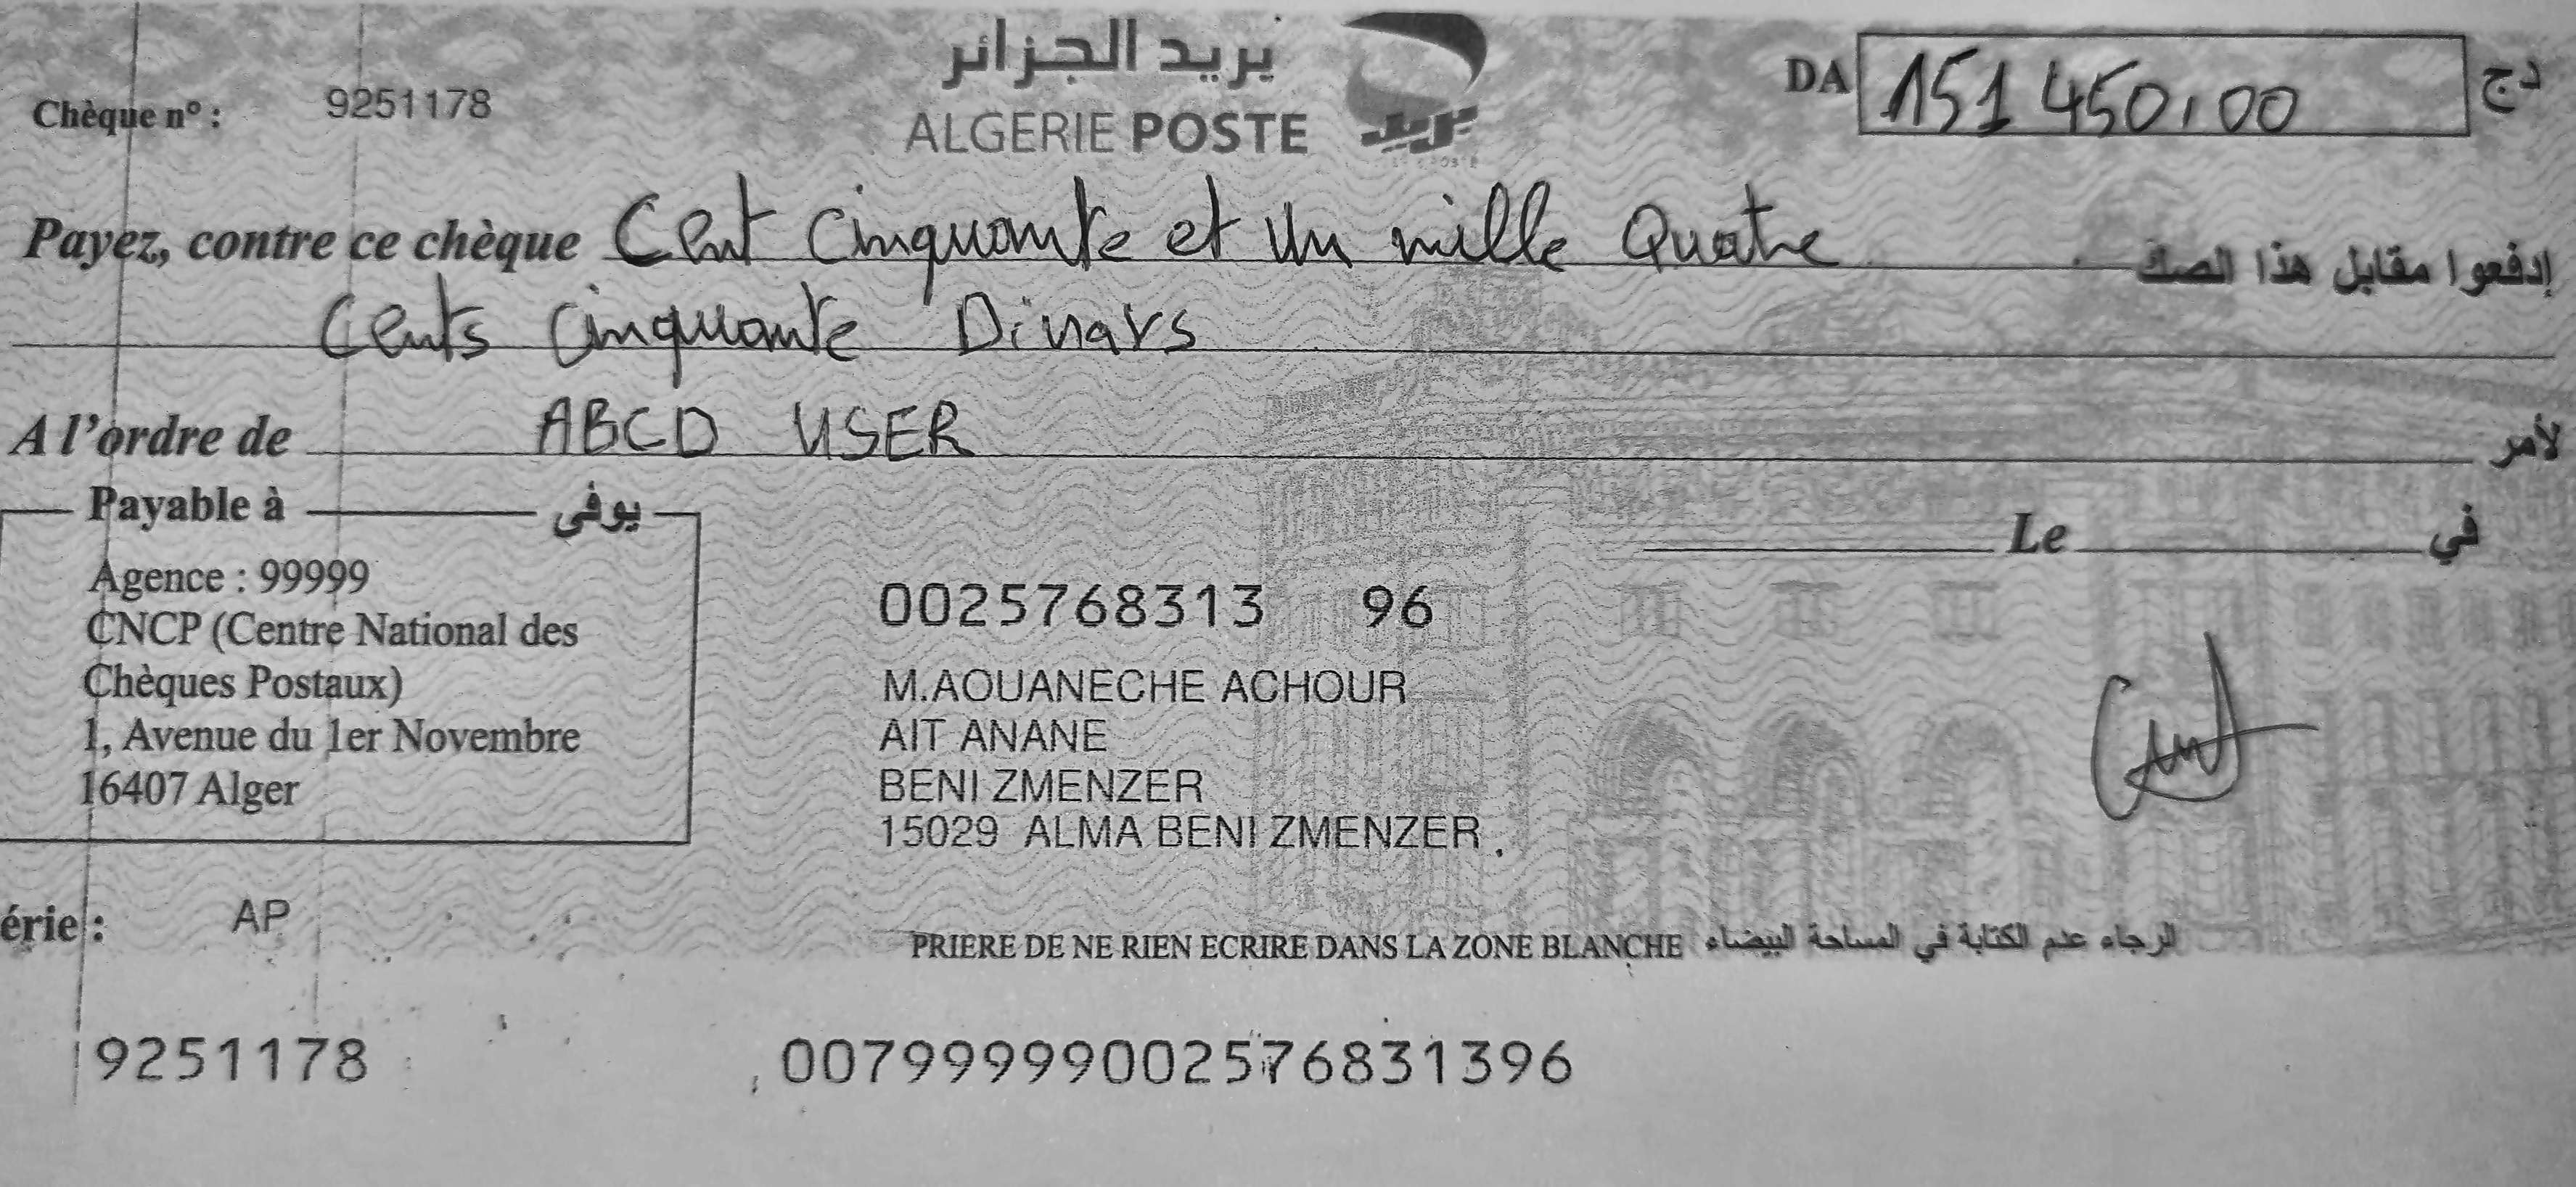 بريد الجزائر
ALGERIE POSTE
بريد
Chèque n° : 9251178
DA 151 450,00 دج
Payez, contre ce chèque Cent Cinquante et un mille Quatre إدفعوا مقابل هذا الصك
Cents Cinquante Dinars
A l'ordre de ABCD USER لأمر
Payable à يوفى
Le في
Agence : 99999
CNCP (Centre National des
Chèques Postaux)
1, Avenue du 1er Novembre
16407 Alger
0025768313 96
M.AOUANECHE ACHOUR
AIT ANANE
BENI ZMENZER
15029 ALMA BENI ZMENZER
érie : AP
PRIERE DE NE RIEN ECRIRE DANS LA ZONE BLANCHE الرجاء عدم الكتابة في المساحة البيضاء
9251178 00799999002576831396